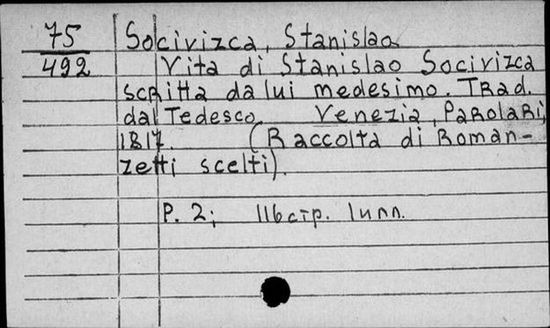 75 Socivizca, Stanislao
492 Vita di Stanislao Socivizca
scritta da lui medesimo. Trad.
dal Tedesco. Venezia, Parolari,
1817. (Raccolta di Roman-
zetti scelti).
P. 2; 116 стр. 1 илл.